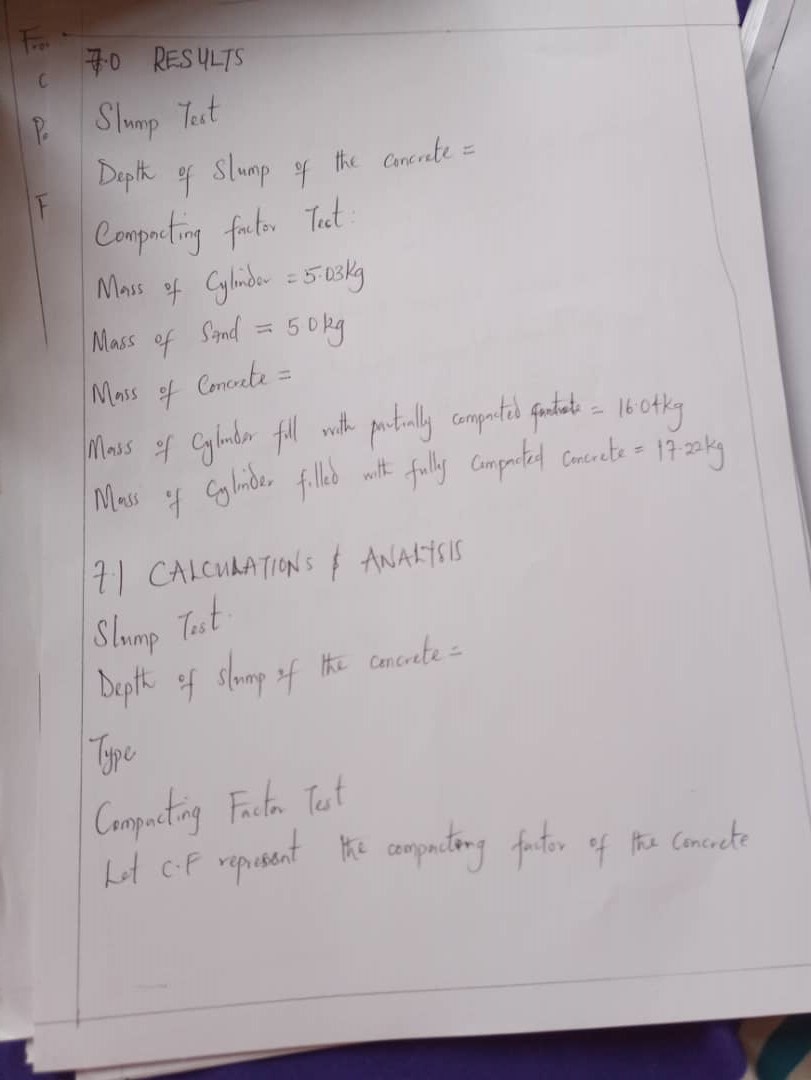 From
C
Po
F
7.0 RESULTS
Slump Test
Depth of Slump of the concrete =
Compacting factor Test:
Mass of Cylinder = 5.03kg
Mass of Sand = 5.0kg
Mass of Concrete =
Mass of Cylinder fill with partially compacted = 16.04kg
Mass of Cylinder filled with fully Compacted Concrete = 17.22kg
7.1 CALCULATIONS & ANALYSIS
Slump Test.
Depth of slump of the concrete =
Type
Compacting Factor Test
Let C.F represent the compacting factor of the Concrete